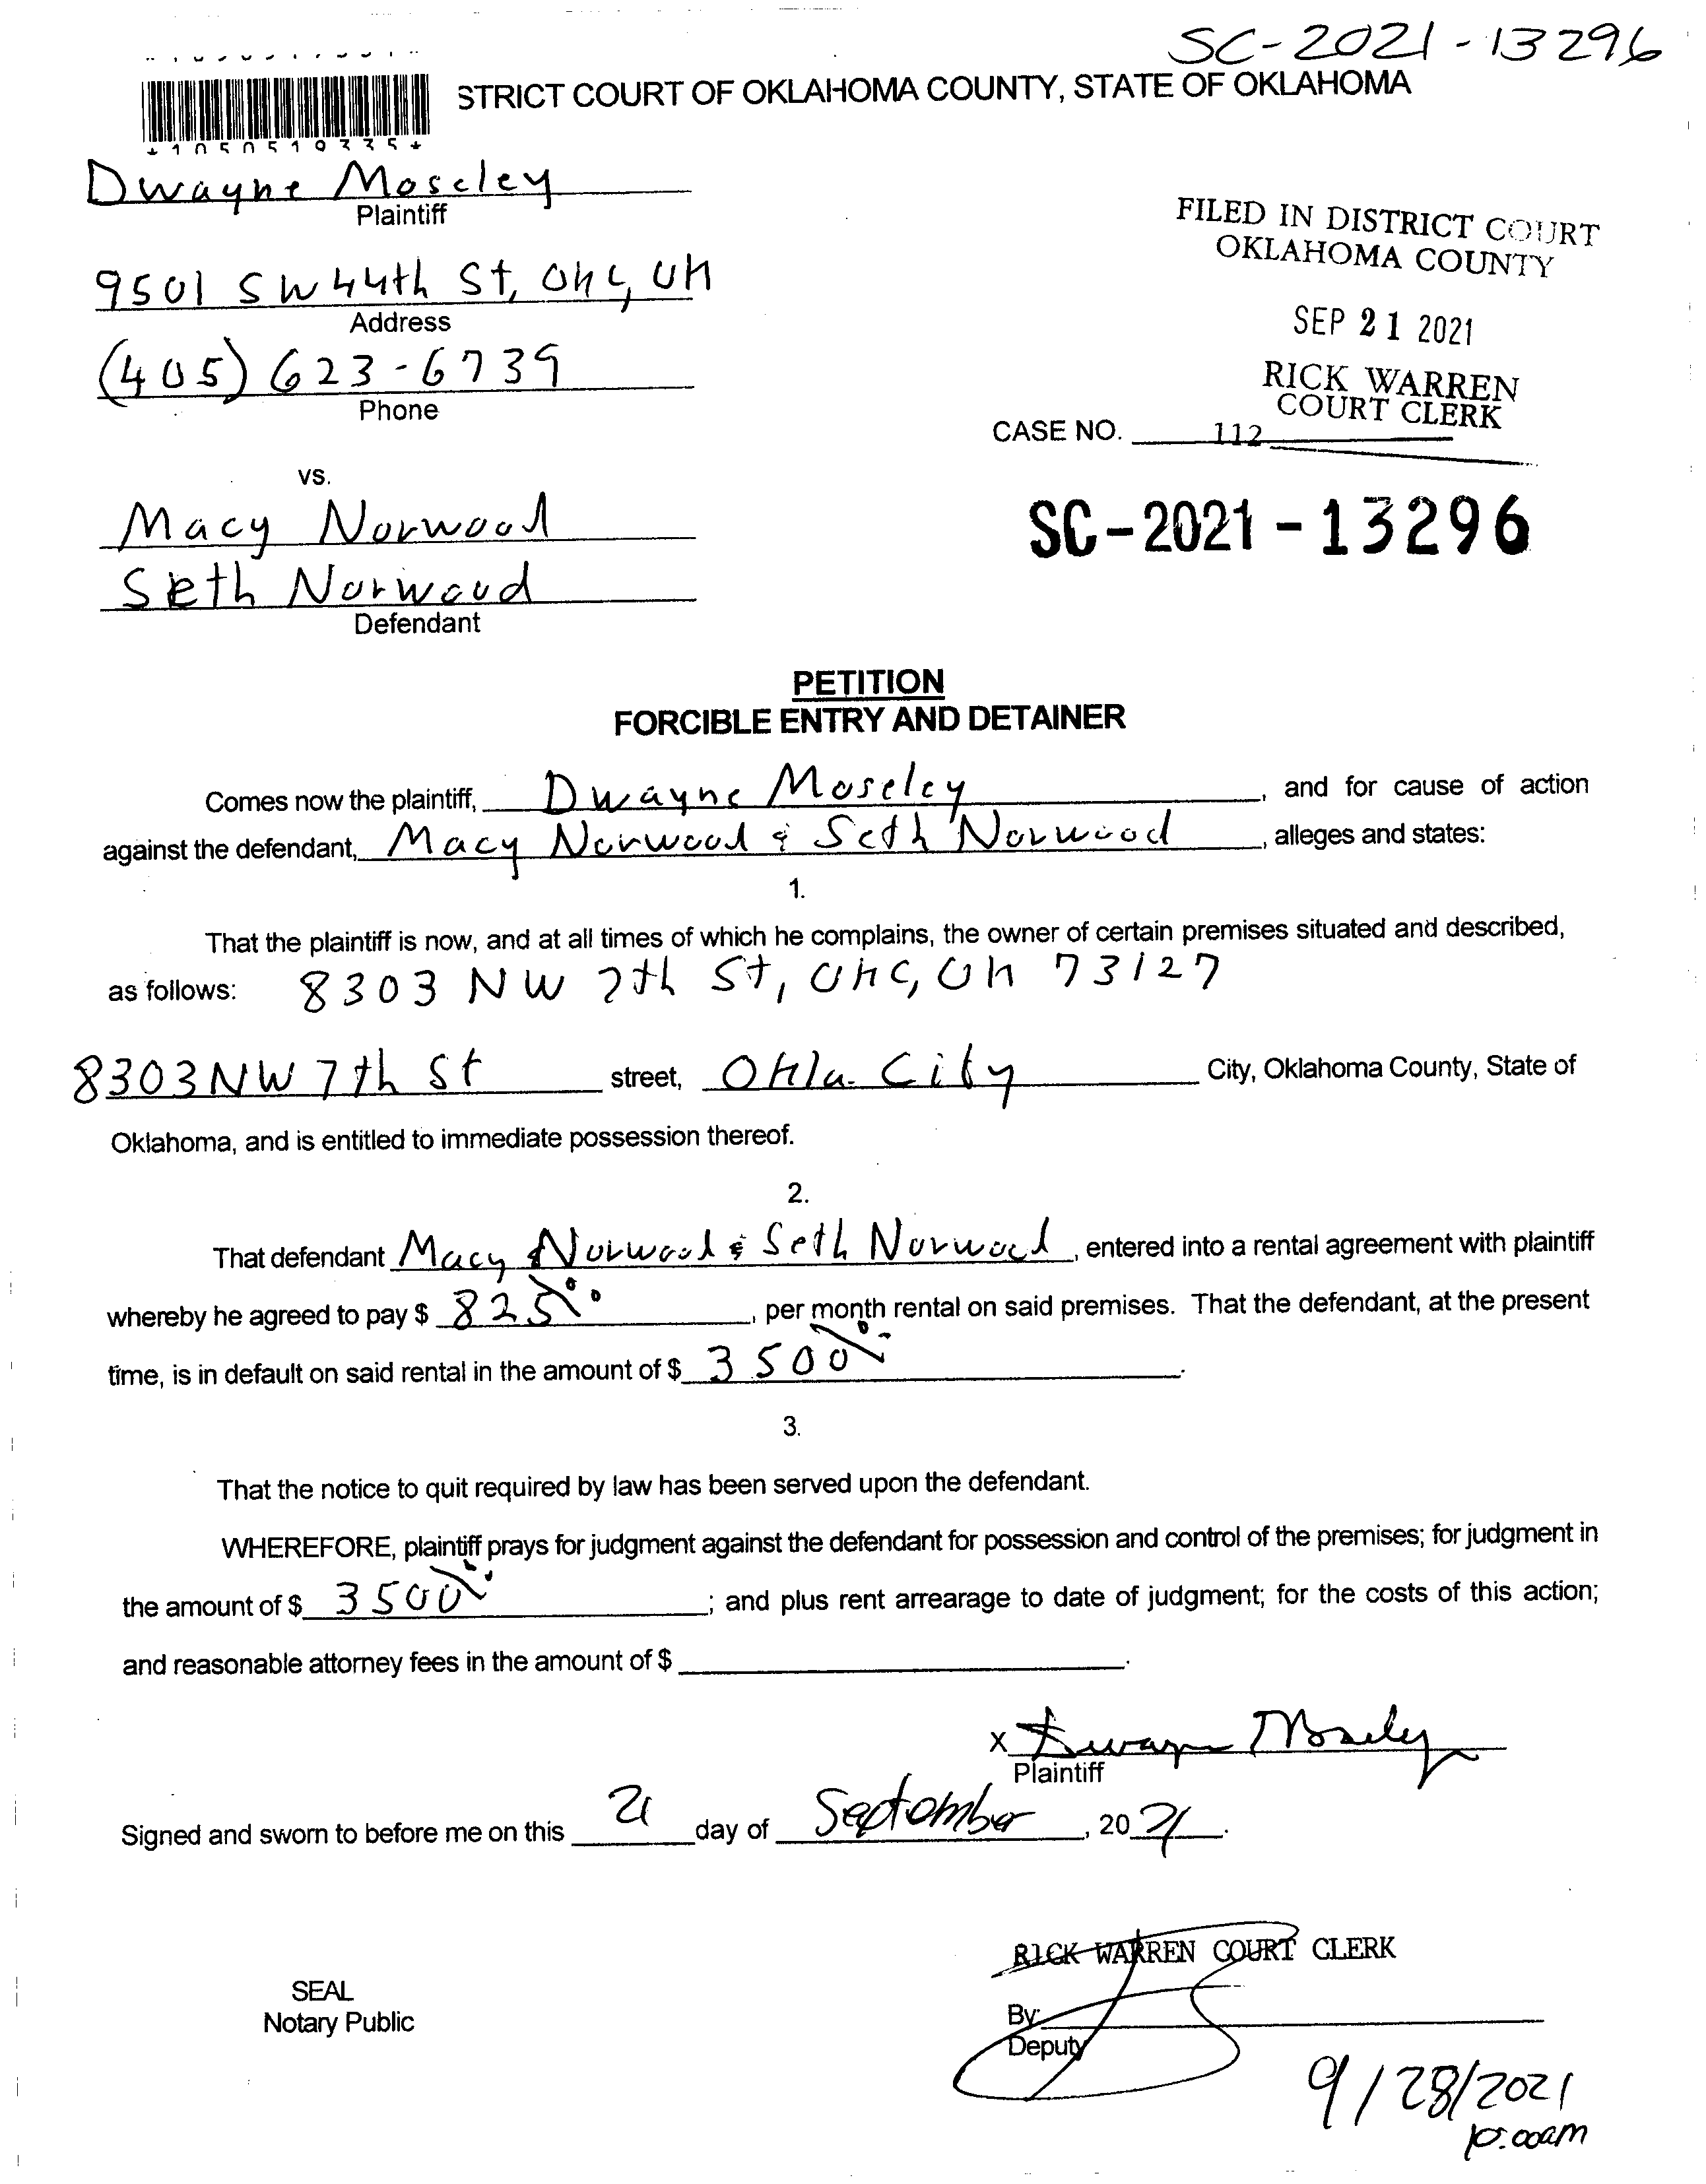 SC-2021-13296
STRICT COURT OF OKLAHOMA COUNTY, STATE OF OKLAHOMA
*1050519335*
Dwayne Moseley
Plaintiff
FILED IN DISTRICT COURT
OKLAHOMA COUNTY
9501 SW 44th St, OKC, OK
Address
SEP 21 2021
(405) 623-6739
Phone
RICK WARREN
COURT CLERK
CASE NO. 112
vs.
Macy Norwood
SC-2021-13296
Seth Norwood
Defendant
PETITION
FORCIBLE ENTRY AND DETAINER
Comes now the plaintiff, Dwayne Moseley, and for cause of action
against the defendant, Macy Norwood & Seth Norwood, alleges and states:
1.
That the plaintiff is now, and at all times of which he complains, the owner of certain premises situated and described,
as follows: 8303 NW 7th St, OKC, OK 73127
8303 NW 7th St street, Okla. City City, Oklahoma County, State of
Oklahoma, and is entitled to immediate possession thereof.
2.
That defendant Macy Norwood & Seth Norwood, entered into a rental agreement with plaintiff
whereby he agreed to pay $ 825%, per month rental on said premises. That the defendant, at the present
time, is in default on said rental in the amount of $ 3500%.
3.
That the notice to quit required by law has been served upon the defendant.
WHEREFORE, plaintiff prays for judgment against the defendant for possession and control of the premises; for judgment in
the amount of $ 3500%; and plus rent arrearage to date of judgment; for the costs of this action;
and reasonable attorney fees in the amount of $ .
X Dwayne Moseley
Plaintiff
Signed and sworn to before me on this 21 day of September, 2021.
RICK WARREN COURT CLERK
SEAL
Notary Public
By:
Deputy
9/28/2021
10:00am